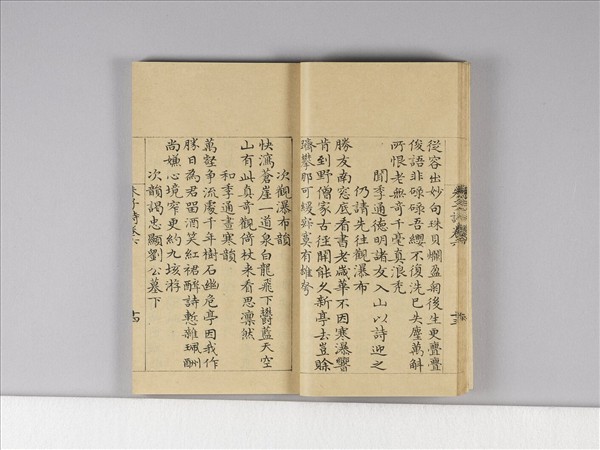 從容出妙句珠貝爛盈匊後生更亹亹
俊語非碌碌吾纓不復洗已失塵萬斛
所恨老無奇千毫真浪禿
聞季通德明諸友入山以詩迎之
仍請先往觀瀑布
勝友南窓底看書老歲華不因寒瀑響
肯到野僧家古徑開能久新亭去豈賒
躋攀那可緩莫有雄夸
次觀瀑布韻
快瀉蒼崖一道泉白龍飛下鬱藍天空
山有此真奇觀倚杖来看思凛然
和季通晝寒韻
萬壑爭流處千年樹石幽危亭因我作
勝日為君留酒笑紅裙醉詩慙雜珮酬
尚嫌心境窄更約九垓游
次韻謁忠顯劉公墓下
朱子詩卷六
十四